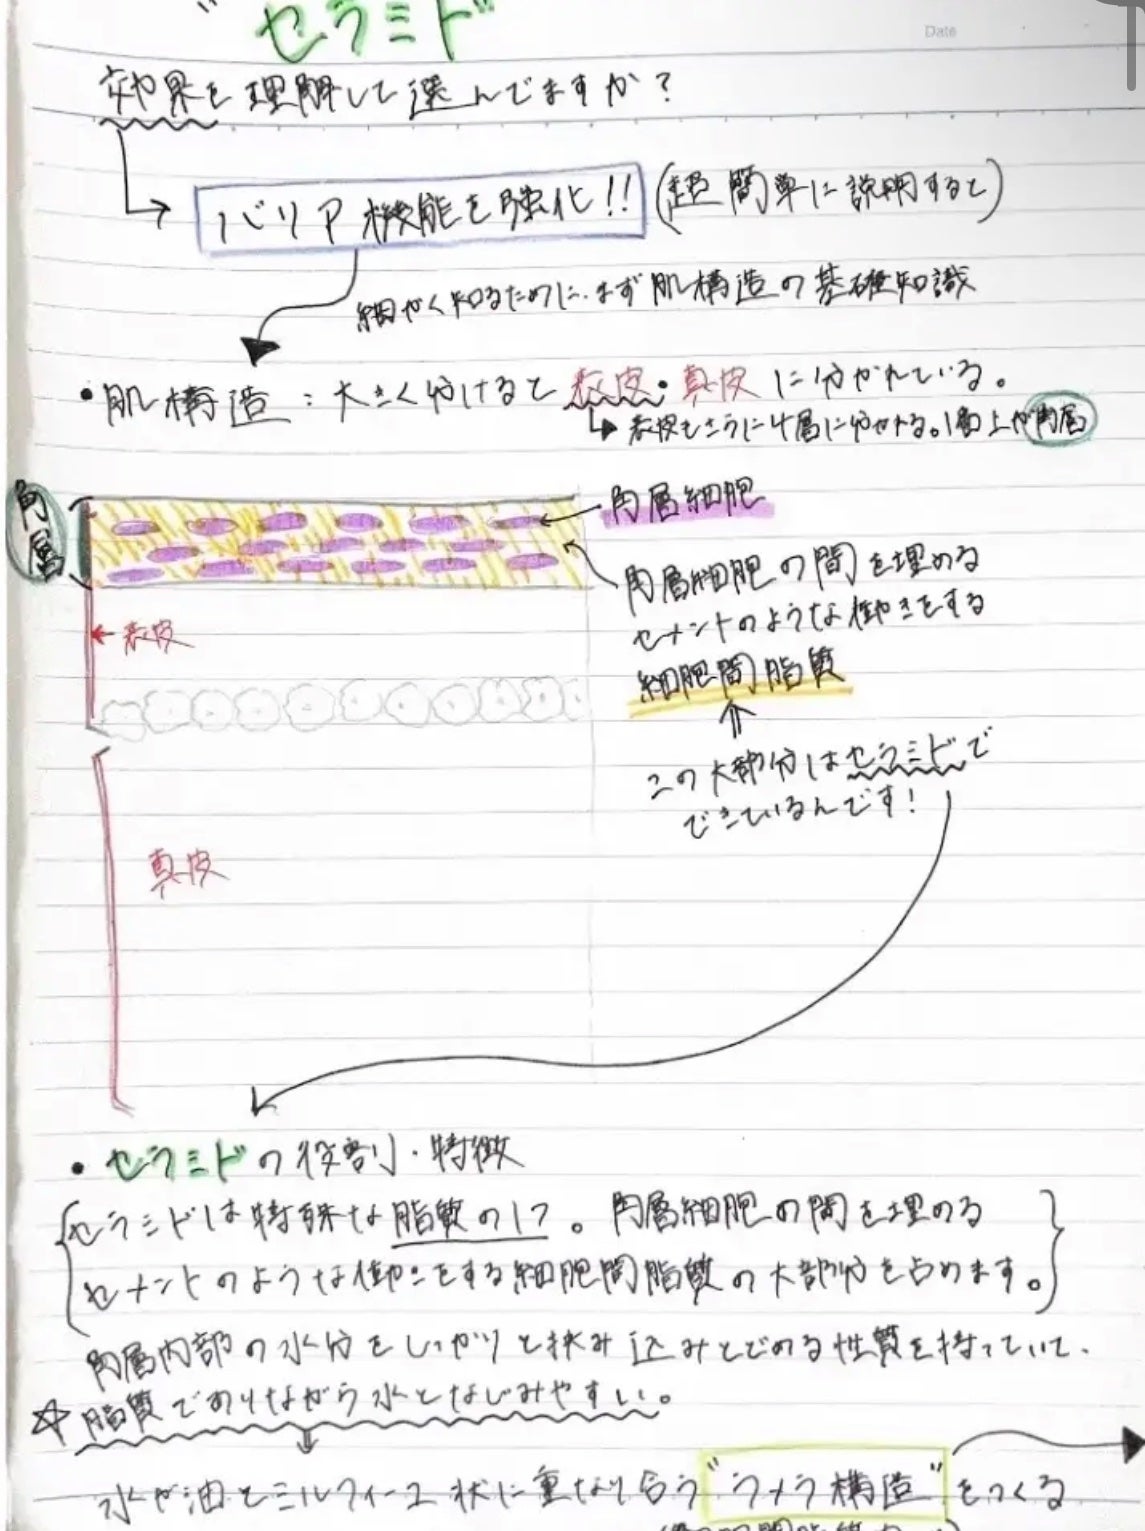 "セラミド"
Date
効果を理解して選んでますか?
バリア機能を強化!! (超簡単に説明すると)
細かく知るために、まず肌構造の基礎知識
・肌構造:大きく分けると表皮・真皮に分かれている。
表皮もさらに4層に分かれる。1番上が角層
角層
角層細胞
角層細胞の間を埋める
セメントのような働きをする
細胞間脂質
表皮
この大部分はセラミドで
できているんです!
真皮
・セラミドの役割・特徴
セラミドは特殊な脂質の1つ。角層細胞の間を埋める
セメントのような働きをする細胞間脂質の大部分を占めます。
角層内部の水分をしっかりと挟み込みとどめる性質を持っていて、
☆脂質でありながら水となじみやすい。
水や油とミルフィーユ状に重なり合う"ラメラ構造"をつくる